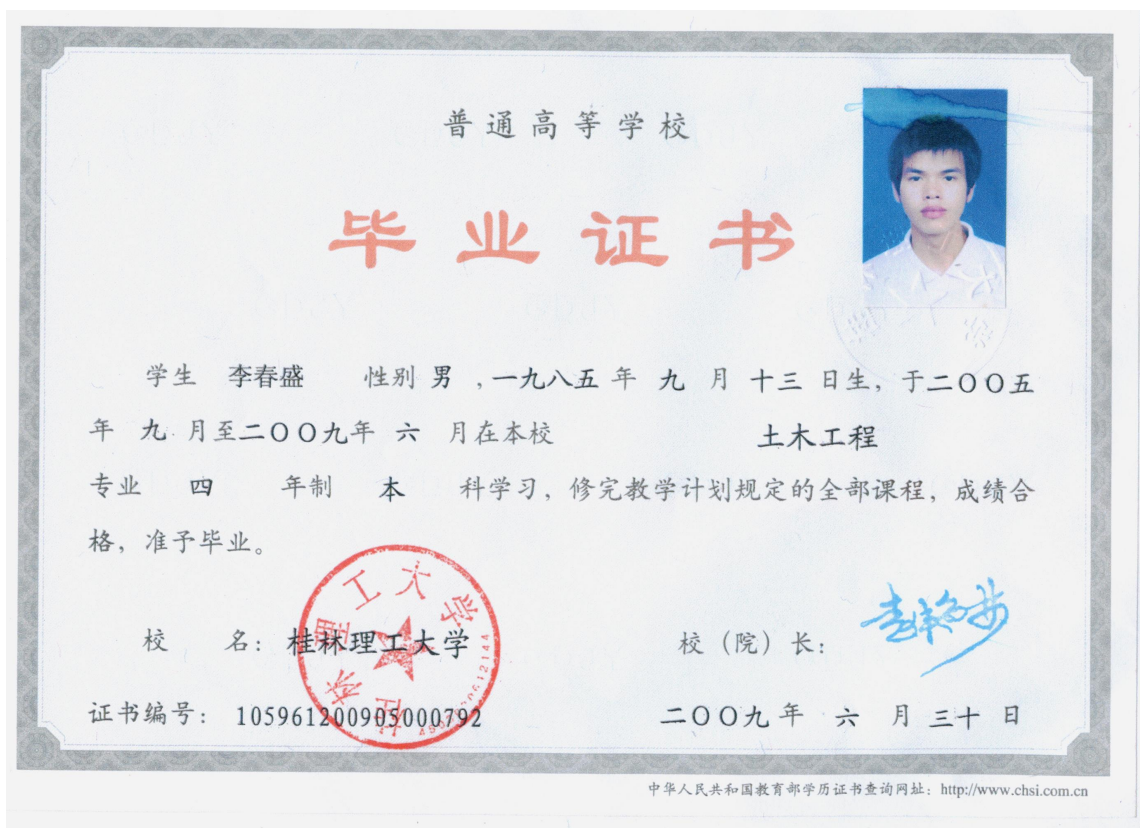 普通高等学校
毕业证书
学生 李春盛 性别 男 ,一九八五 年 九 月 十三 日生，于二〇〇五
年 九 月至二〇〇九年 六 月在本校 土木工程
专业 四 年制 本 科学习，修完教学计划规定的全部课程，成绩合
格，准予毕业。
桂林理工大学
校 名：桂林理工大学 校（院）长：
证书编号：105961200905000792 二〇〇九 年 六 月 三十 日
中华人民共和国教育部学历证书查询网址：http://www.chsi.com.cn